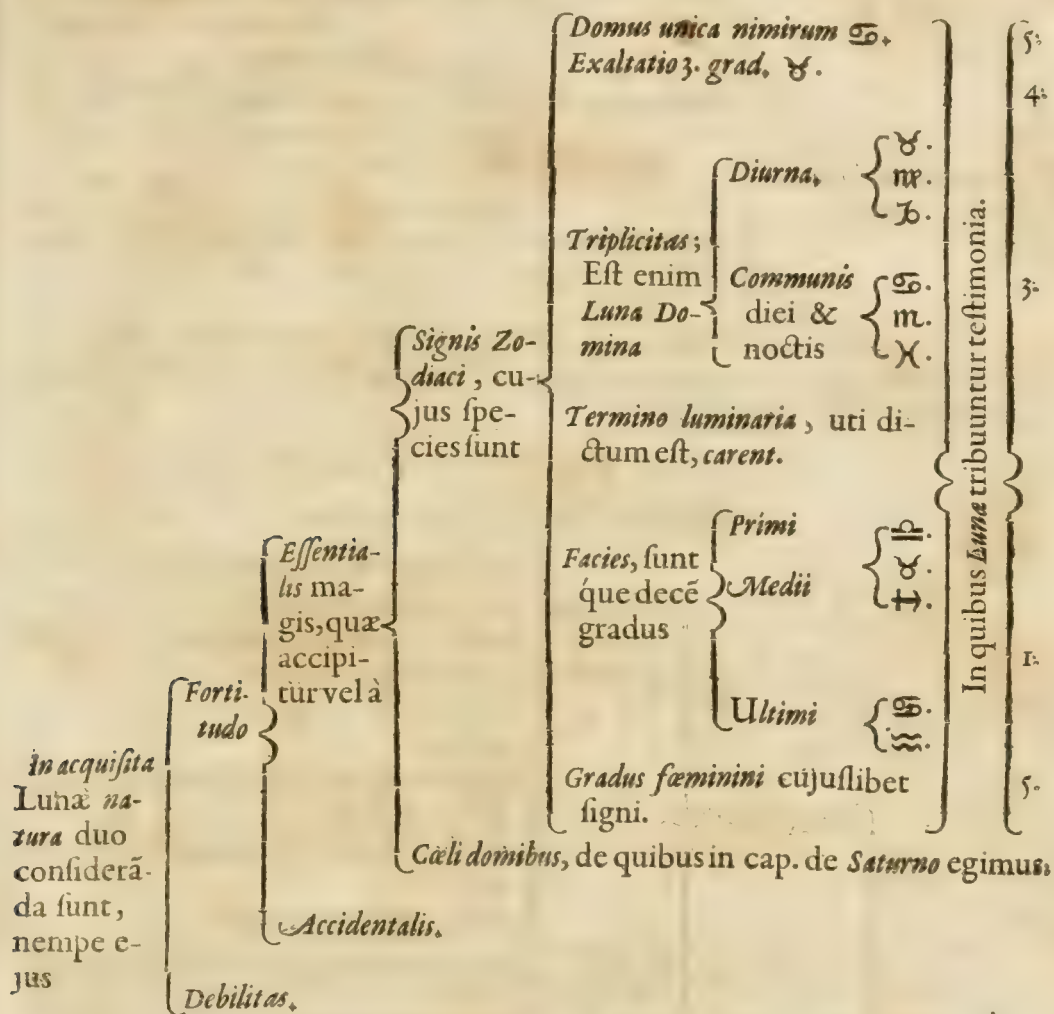 In acquisita
Lunæ na-
tura duo
considerã-
da sunt,
nempe e-
jus
Forti-
tudo
Essentia-
lis ma-
gis, quæ
accipi-
tur vel à
Signis Zo-
diaci, cu-
jus spe-
cies sunt
Domus unica nimirum ♋.
Exaltatio 3. grad. ♉.
Triplicitas;
Est enim
Luna Do-
mina
Diurna.
♉.
♍.
♑.
Communis
diei &
noctis
♋.
♏.
♓.
Termino luminaria, uti di-
ctum est, carent.
Facies, sunt
q́ue decẽ
gradus
Primi
Medii
♎.
♉.
♐.
Ultimi
♋.
♒.
Gradus fœminini cujuslibet
signi.
In quibus Lunæ tribuuntur testimonia.
5:
4:
3:
1:
5.
Cœli domibus, de quibus in cap. de Saturno egimus.
Accidentalis.
Debilitas.